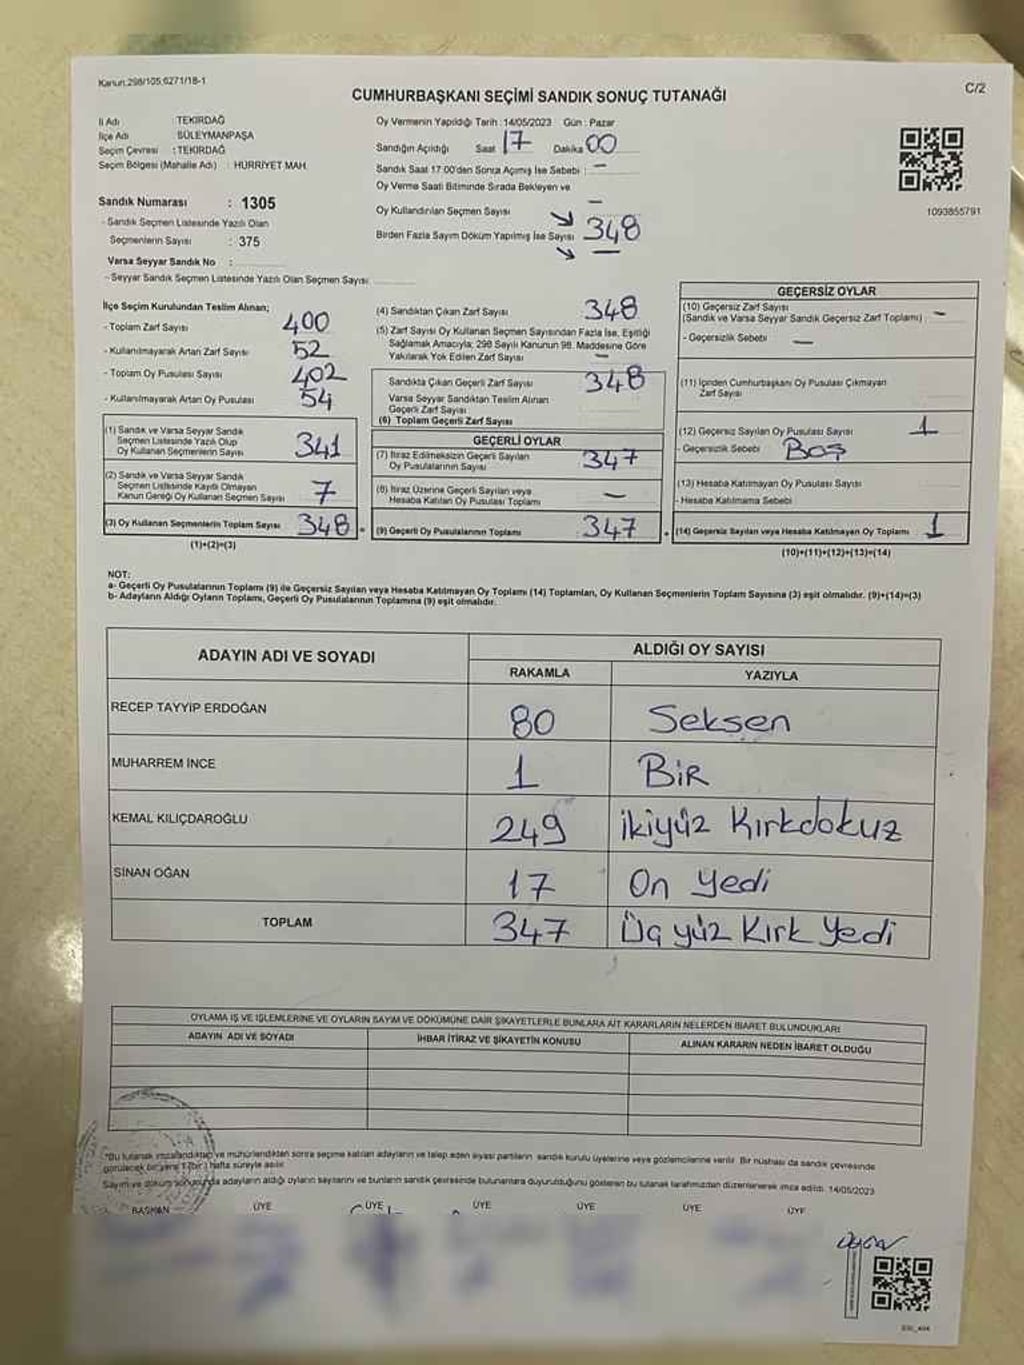 Kanun:298/105,6271/18-1
C/2
CUMHURBAŞKANI SEÇİMİ SANDIK SONUÇ TUTANAĞI
İl Adı : TEKİRDAĞ
İlçe Adı : SÜLEYMANPAŞA
Seçim Çevresi : TEKİRDAĞ
Seçim Bölgesi (Mahalle Adı) : HÜRRİYET MAH.
Sandık Numarası : 1305
- Sandık Seçmen Listesinde Yazılı Olan
Seçmenlerin Sayısı : 375
Varsa Seyyar Sandık No :
- Seyyar Sandık Seçmen Listesinde Yazılı Olan Seçmen Sayısı
Oy Vermenin Yapıldığı Tarih : 14/05/2023 Gün : Pazar
Sandığın Açıldığı Saat 17 Dakika 00
Sandık Saat 17:00'den Sonra Açılmış İse Sebebi : -
Oy Verme Saati Bitiminde Sırada Bekleyen ve
Oy Kullandırılan Seçmen Sayısı -
Birden Fazla Sayım Döküm Yapılmış İse Sayısı 348
-
1093855791
İlçe Seçim Kurulundan Teslim Alınan;
- Toplam Zarf Sayısı 400
- Kullanılmayarak Artan Zarf Sayısı 52
- Toplam Oy Pusulası Sayısı 402
- Kullanılmayarak Artan Oy Pusulası 54
(1) Sandık ve Varsa Seyyar Sandık
Seçmen Listesinde Yazılı Olup
Oy Kullanan Seçmenlerin Sayısı 341
(2) Sandık ve Varsa Seyyar Sandık
Seçmen Listesinde Kayıtlı Olmayan
Kanun Gereği Oy Kullanan Seçmen Sayısı 7
(3) Oy Kullanan Seçmenlerin Toplam Sayısı 348
(1)+(2)=(3)
(4) Sandıktan Çıkan Zarf Sayısı 348
(5) Zarf Sayısı Oy Kullanan Seçmen Sayısından Fazla İse, Eşitliği
Sağlamak Amacıyla; 298 Sayılı Kanunun 98. Maddesine Göre
Yakılarak Yok Edilen Zarf Sayısı -
Sandıkta Çıkan Geçerli Zarf Sayısı 348
Varsa Seyyar Sandıktan Teslim Alınan
Geçerli Zarf Sayısı
(6) Toplam Geçerli Zarf Sayısı
GEÇERLİ OYLAR
(7) İtiraz Edilmeksizin Geçerli Sayılan
Oy Pusulalarının Sayısı 347
(8) İtiraz Üzerine Geçerli Sayılan veya
Hesaba Katılan Oy Pusulası Toplamı -
(9) Geçerli Oy Pusulalarının Toplamı 347
GEÇERSİZ OYLAR
(10) Geçersiz Zarf Sayısı
(Sandık ve Varsa Seyyar Sandık Geçersiz Zarf Toplamı) : -
- Geçersizlik Sebebi -
(11) İçinden Cumhurbaşkanı Oy Pusulası Çıkmayan
Zarf Sayısı
(12) Geçersiz Sayılan Oy Pusulası Sayısı 1
- Geçersizlik Sebebi Boş
(13) Hesaba Katılmayan Oy Pusulası Sayısı
- Hesaba Katılmama Sebebi
(14) Geçersiz Sayılan veya Hesaba Katılmayan Oy Toplamı 1
(10)+(11)+(12)+(13)=(14)
NOT:
a- Geçerli Oy Pusulalarının Toplamı (9) ile Geçersiz Sayılan veya Hesaba Katılmayan Oy Toplamı (14) Toplamları, Oy Kullanan Seçmenlerin Toplam Sayısına (3) eşit olmalıdır. (9)+(14)=(3)
b- Adayların Aldığı Oyların Toplamı, Geçerli Oy Pusulalarının Toplamına (9) eşit olmalıdır.
ADAYIN ADI VE SOYADI ALDIĞI OY SAYISI
RAKAMLA YAZIYLA
RECEP TAYYİP ERDOĞAN 80 Seksen
MUHARREM İNCE 1 Bir
KEMAL KILIÇDAROĞLU 249 ikiyüz Kırkdokuz
SİNAN OĞAN 17 On Yedi
TOPLAM 347 Üç yüz Kırk Yedi
OYLAMA İŞ VE İŞLEMLERİNE VE OYLARIN SAYIM VE DÖKÜMÜNE DAİR ŞİKAYETLERLE BUNLARA AİT KARARLARIN NELERDEN İBARET BULUNDUKLARI
ADAYIN ADI VE SOYADI İHBAR İTİRAZ VE ŞİKAYETİN KONUSU ALINAN KARARIN NEDEN İBARET OLDUĞU
*Bu tutanak imzalandıktan ve mühürlendikten sonra seçime katılan adayların ve talep eden siyasi partilerin sandık kurulu üyelerine veya gözlemcilerine verilir. Bir nüshası da sandık çevresinde
görülecek bir yere 1 (bir) hafta süreyle asılır.
Sayım ve döküm sonucunda adayların aldığı oyların sayılarını ve bunların sandık çevresinde bulunanlara duyurulduğunu gösteren bu tutanak tarafımızdan düzenlenerek imza edildi. 14/05/2023
BAŞKAN ÜYE ÜYE ÜYE ÜYE ÜYE ÜYE